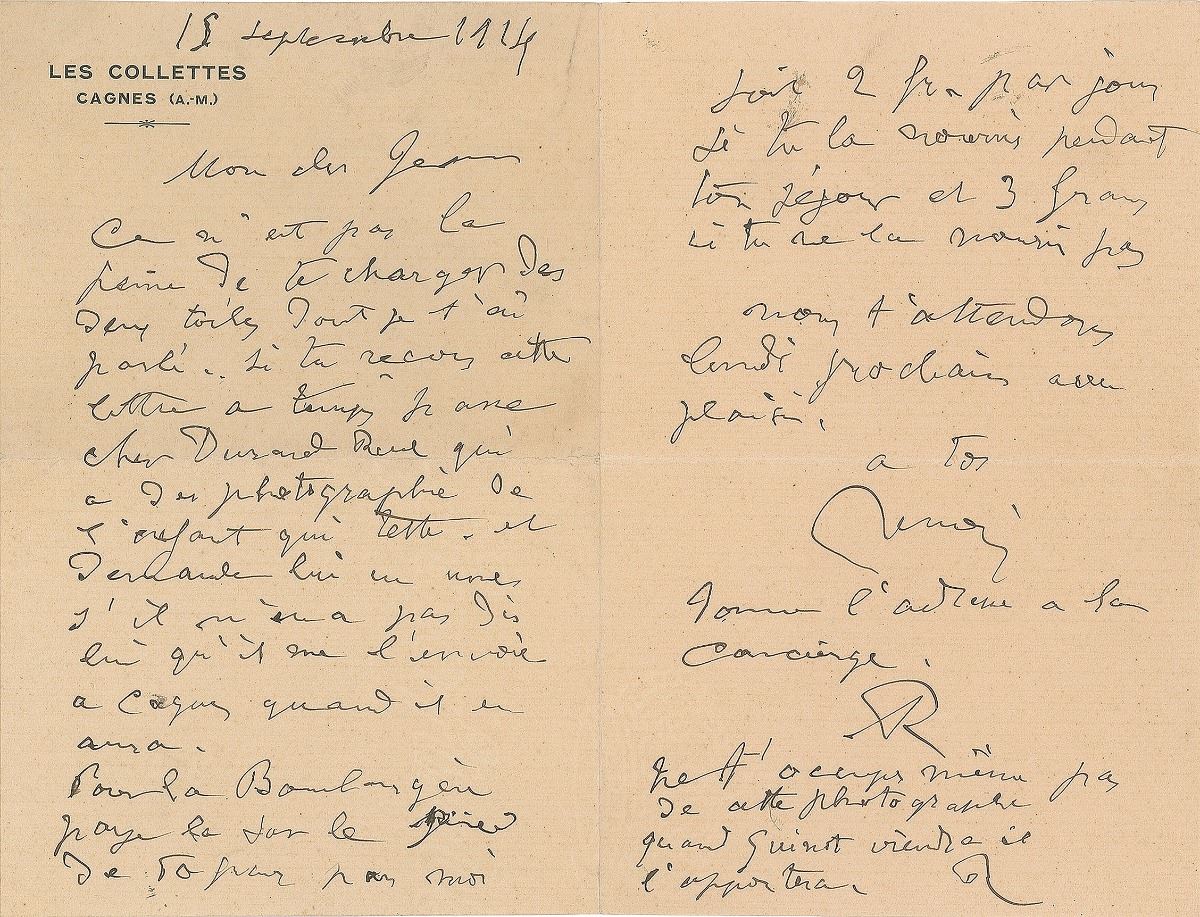 15 septembre 1914
LES COLLETTES
CAGNES (A.-M.)
Mon cher Jean
Ce n'est pas la
peine de te charger des
deux toiles dont je t'ai
parlé.. si tu reçois cette
lettre a temps passe
cher Durand Ruel qui
a des photographie de
l'enfant qui tette. et
demande lui en une,
s'il n'en a pas dis
lui qu'il me l'envoie
a Cagnes quand il en
aura.
Pour la Boulangère
paye la sur le pied
de 60 par mois
soit 2 fr. par jour
si tu la nourris pendant
ton séjour et 3 francs
si tu ne la nourris pas
nous t'attendons
lundi prochain avec
plaisir.
a toi
Renoir
Donne l'adresse a la
concierge.
R
ne t'occupe même pas
de cette photographie
quand Guinot viendra il
l'apportera. R